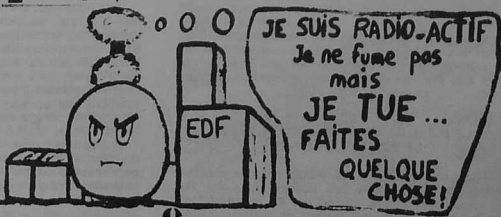 JE SUIS RADIO-ACTIF
Je ne fume pas
mais
JE TUE...
FAITES
QUELQUE
CHOSE!
EDF